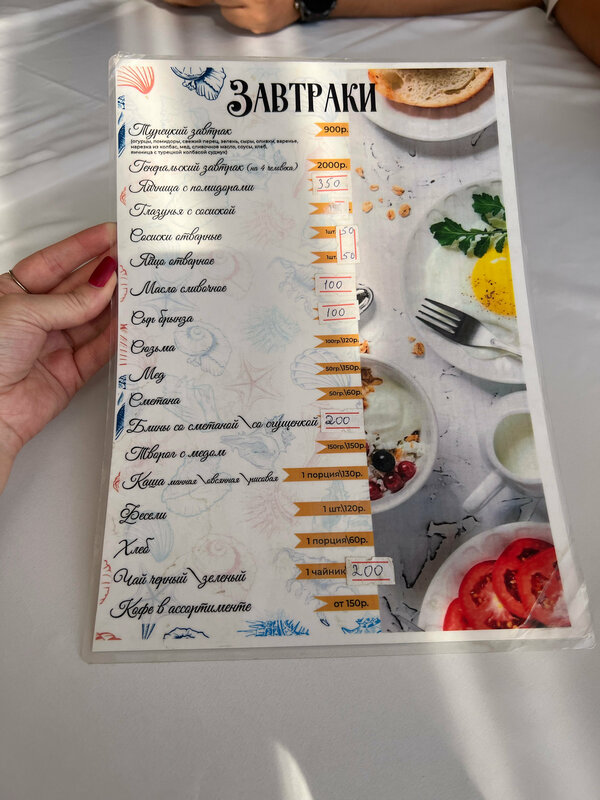 ЗАВТРАКИ
Турецкий завтрак 900р.
(огурцы, помидоры, свежий перец, зелень, сыры, оливки, варенье,
нарезка из колбас, мед, сливочное масло, соусы, хлеб,
яичница с турецкой колбасой суджук)
Генеральский завтрак (на 4 человека) 2000р.
Яичница с помидорами 350
Глазунья с сосиской
Сосиски отварные 1шт. 50
Яйцо отварное 1шт. 50
Масло сливочное 100
Сыр брынза 100
Сюзьма 100гр.\120р.
Мед 50гр.\150р.
Сметана 50гр.\60р.
Блины со сметаной\со сгущенкой 200
Творог с медом 150гр.\150р.
Каша манная\овсянная\рисовая 1 порция\130р.
Бесели 1 шт.\120р.
Хлеб 1 порция\60р.
Чай черный\зеленый 1 чайник 200
Кофе в ассортименте от 150р.